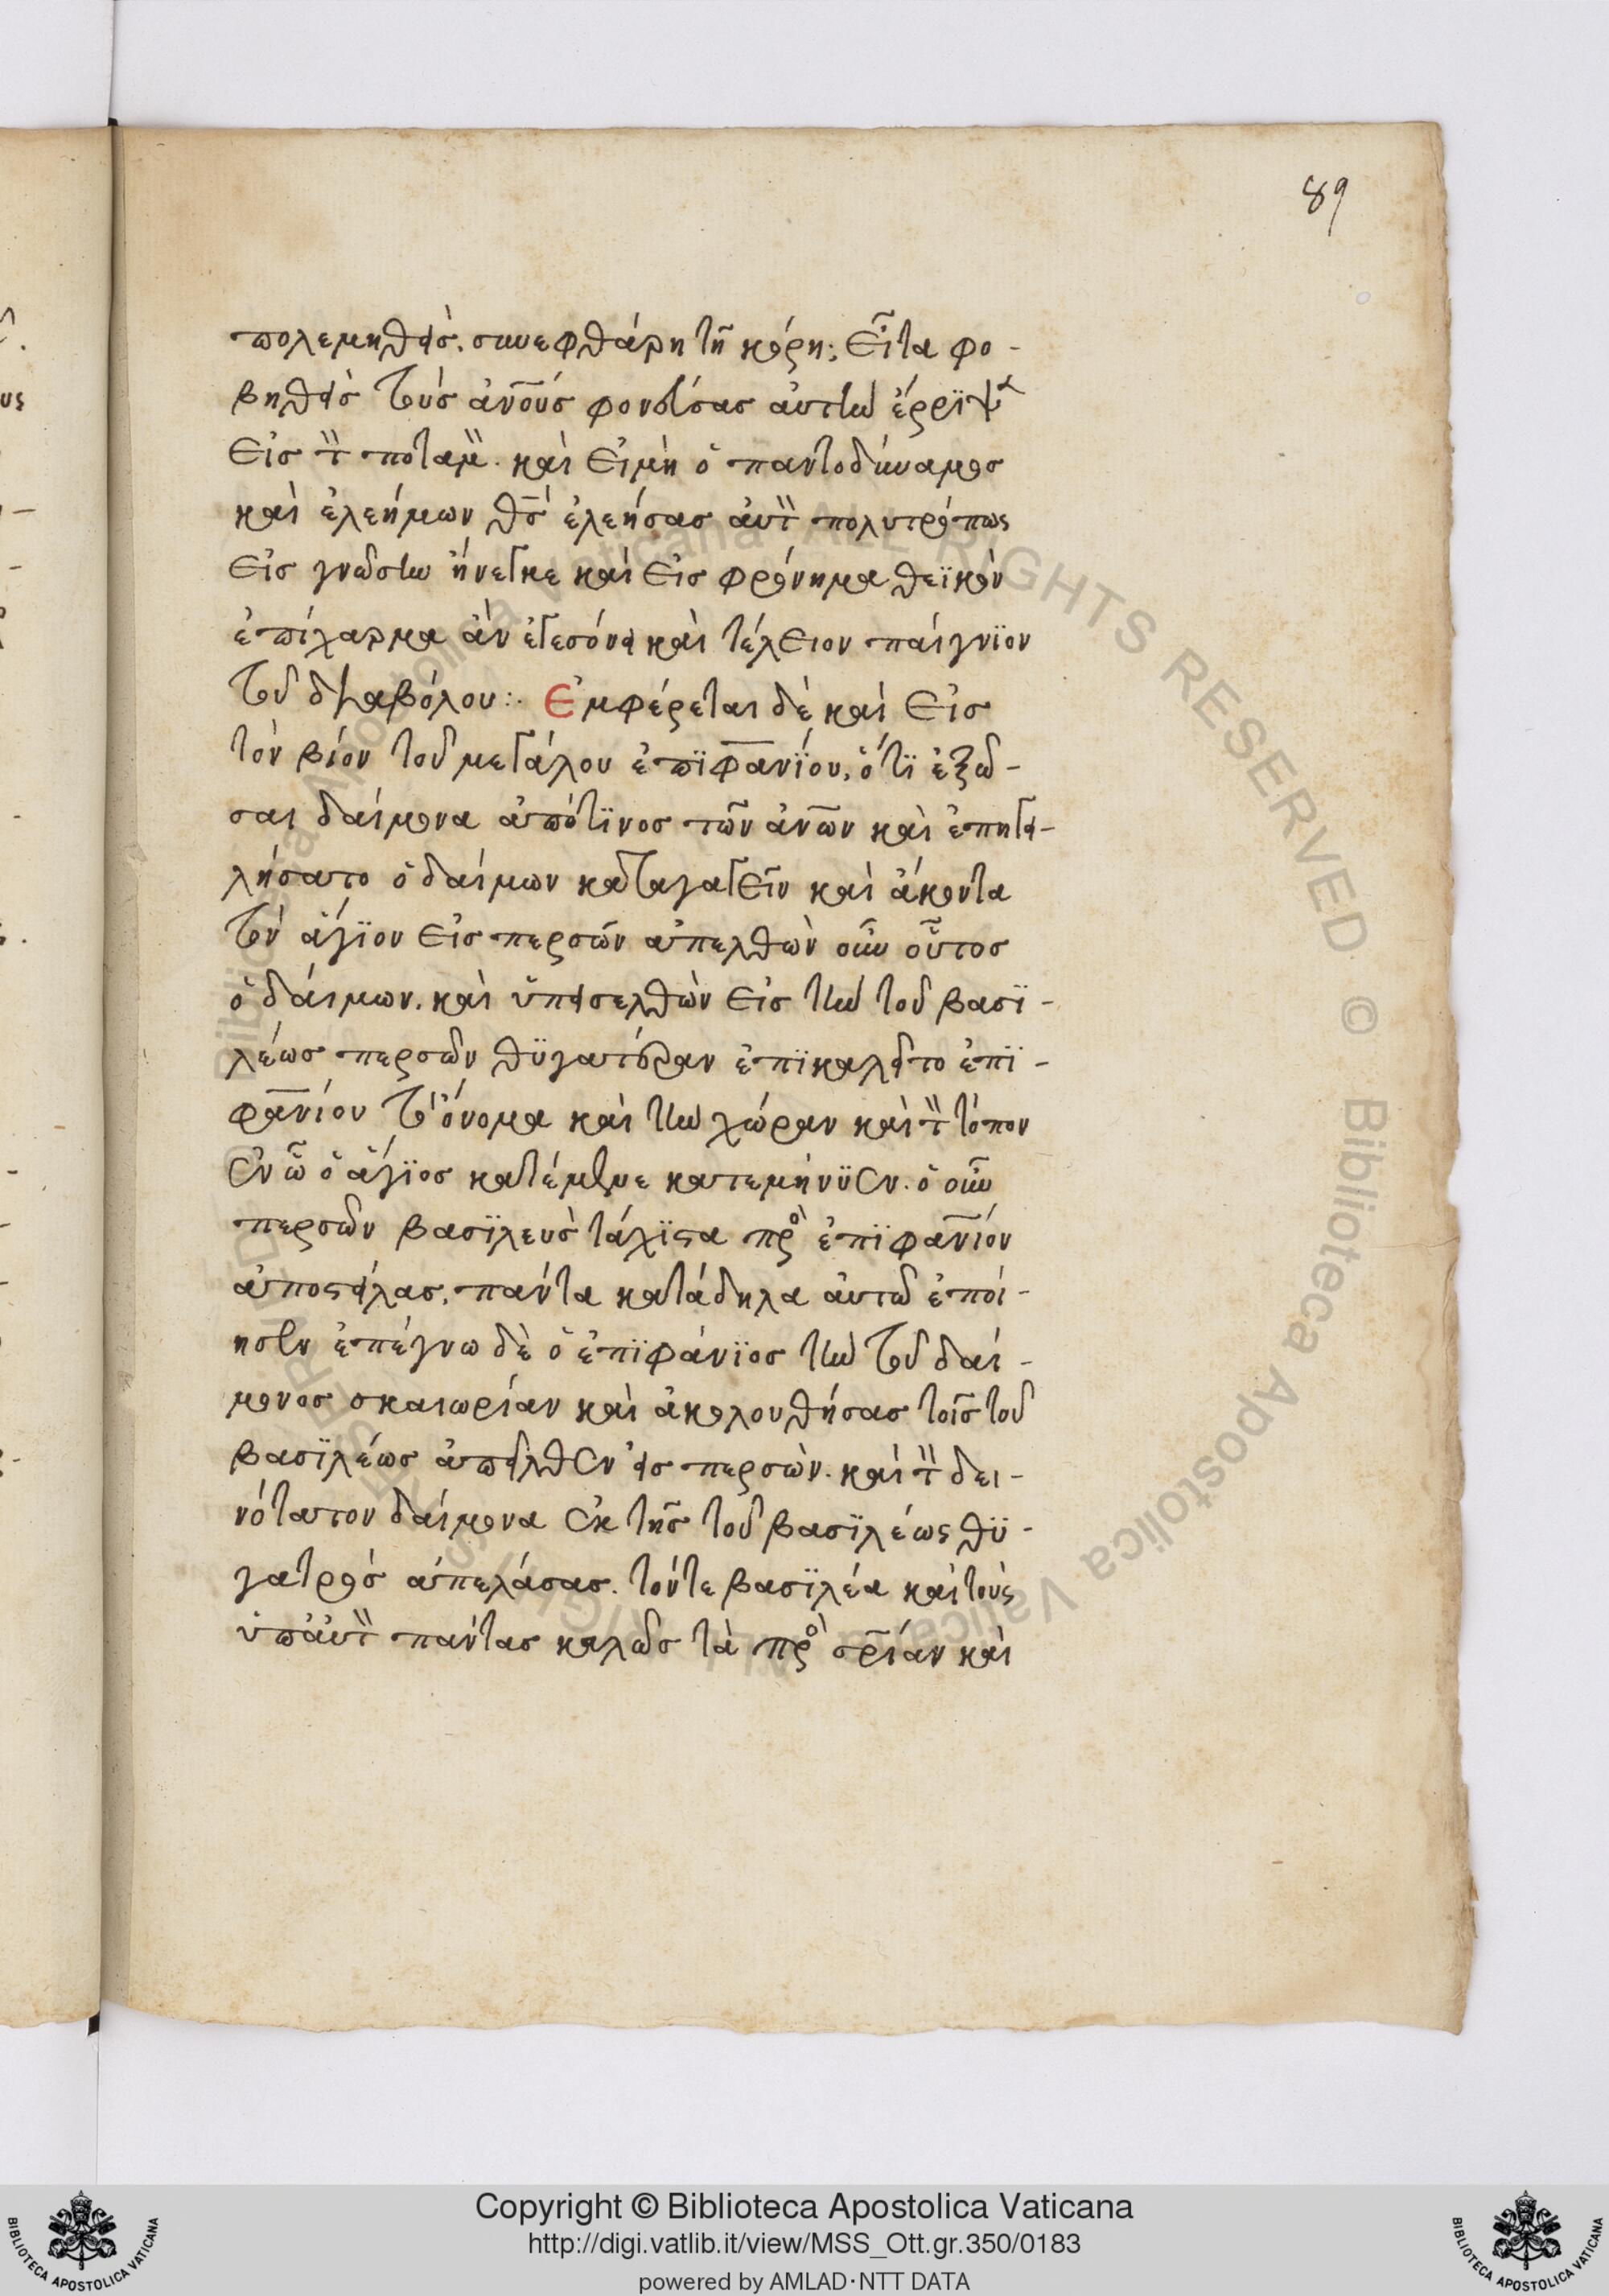 89
πολεμηθεὶς. συνεφθάρη τῆ κόρη; Εἶτα φο-
βηθεὶς τοὺς ἀνοὺς φονεύσας ἀυτὴν ἔρριψ
Εἰς τὸν ποταμὸν. καὶ Εἰμὴ ὁ παντοδύναμος
καὶ ἐλεήμων θς ἐλεήσας ἀυτὸν πολυτρόπως
Εἰς γνῶσιν ἤνεγκε καὶ Εἰς φρόνημα θεϊκὸν
ἐπίχαρμα ἂν ἐγεγόνει καὶ τέλειον παίγνϊον
τοῦ διαβόλου:. Εμφέρεται δὲ καὶ Εἰς
τὸν βίον τοῦ μεγάλου ἐπϊφανϊου, ὅτϊ ἐξῶ-
σαι δαίμονα ἀπότϊνος τῶν ἀνῶν καὶ ἐπηγγει-
λήσατο ὁ δαίμων καταγαγεῖν καὶ ἄκοντα
τὸν ἅγϊον Εἰς περσῶν ἀπελθὼν οὖν οὗτος
ὁ δαίμων. καὶ ὑπεισελθὼν Εἰς τὴν τοῦ βασϊ-
λέως περσῶν θϋγατέραν ἐπϊκαλεῖτο ἐπϊ-
φανίου τὸ ὄνομα καὶ τὴν χώραν καὶ τὸν τόπον
ἐν ὧ ὁ ἅγϊος κατέμεινε κατεμήνϋεν. ὁ οὖν
περσῶν βασϊλεὺς τάχϊστα πρὸς ἐπϊφανϊόν
ἀποστείλας, πάντα κατάδηλα ἀυτῶ ἐποί-
ησεν ἐπέγνω δὲ ὁ ἐπϊφάνϊος τὴν τοῦ δαί-
μονος σκαιωρίαν καὶ ἀκολουθήσας τοῖς τοῦ
βασϊλέως ἀπῆλθεν εἰς περσὼν. καὶ τὸν δει-
νότατον δαίμονα ἐκ τῆς τοῦ βασϊλέως θϋ-
γατρὸς ἀπελάσας. τόντε βασϊλέα καὶ τοὺς
ὑπἀυτὸν πάντας καλῶς τὰ πρὸς σρίαν καὶ
Copyright © Biblioteca Apostolica Vaticana
http://digi.vatlib.it/view/MSS_Ott.gr.350/0183
powered by AMLAD·NTT DATA